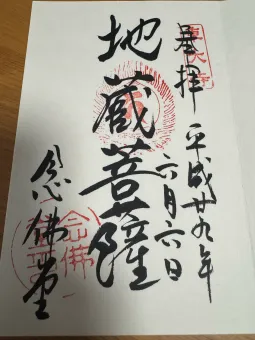 奉拝
平成廿九年
六月六日
地蔵菩薩
念佛堂